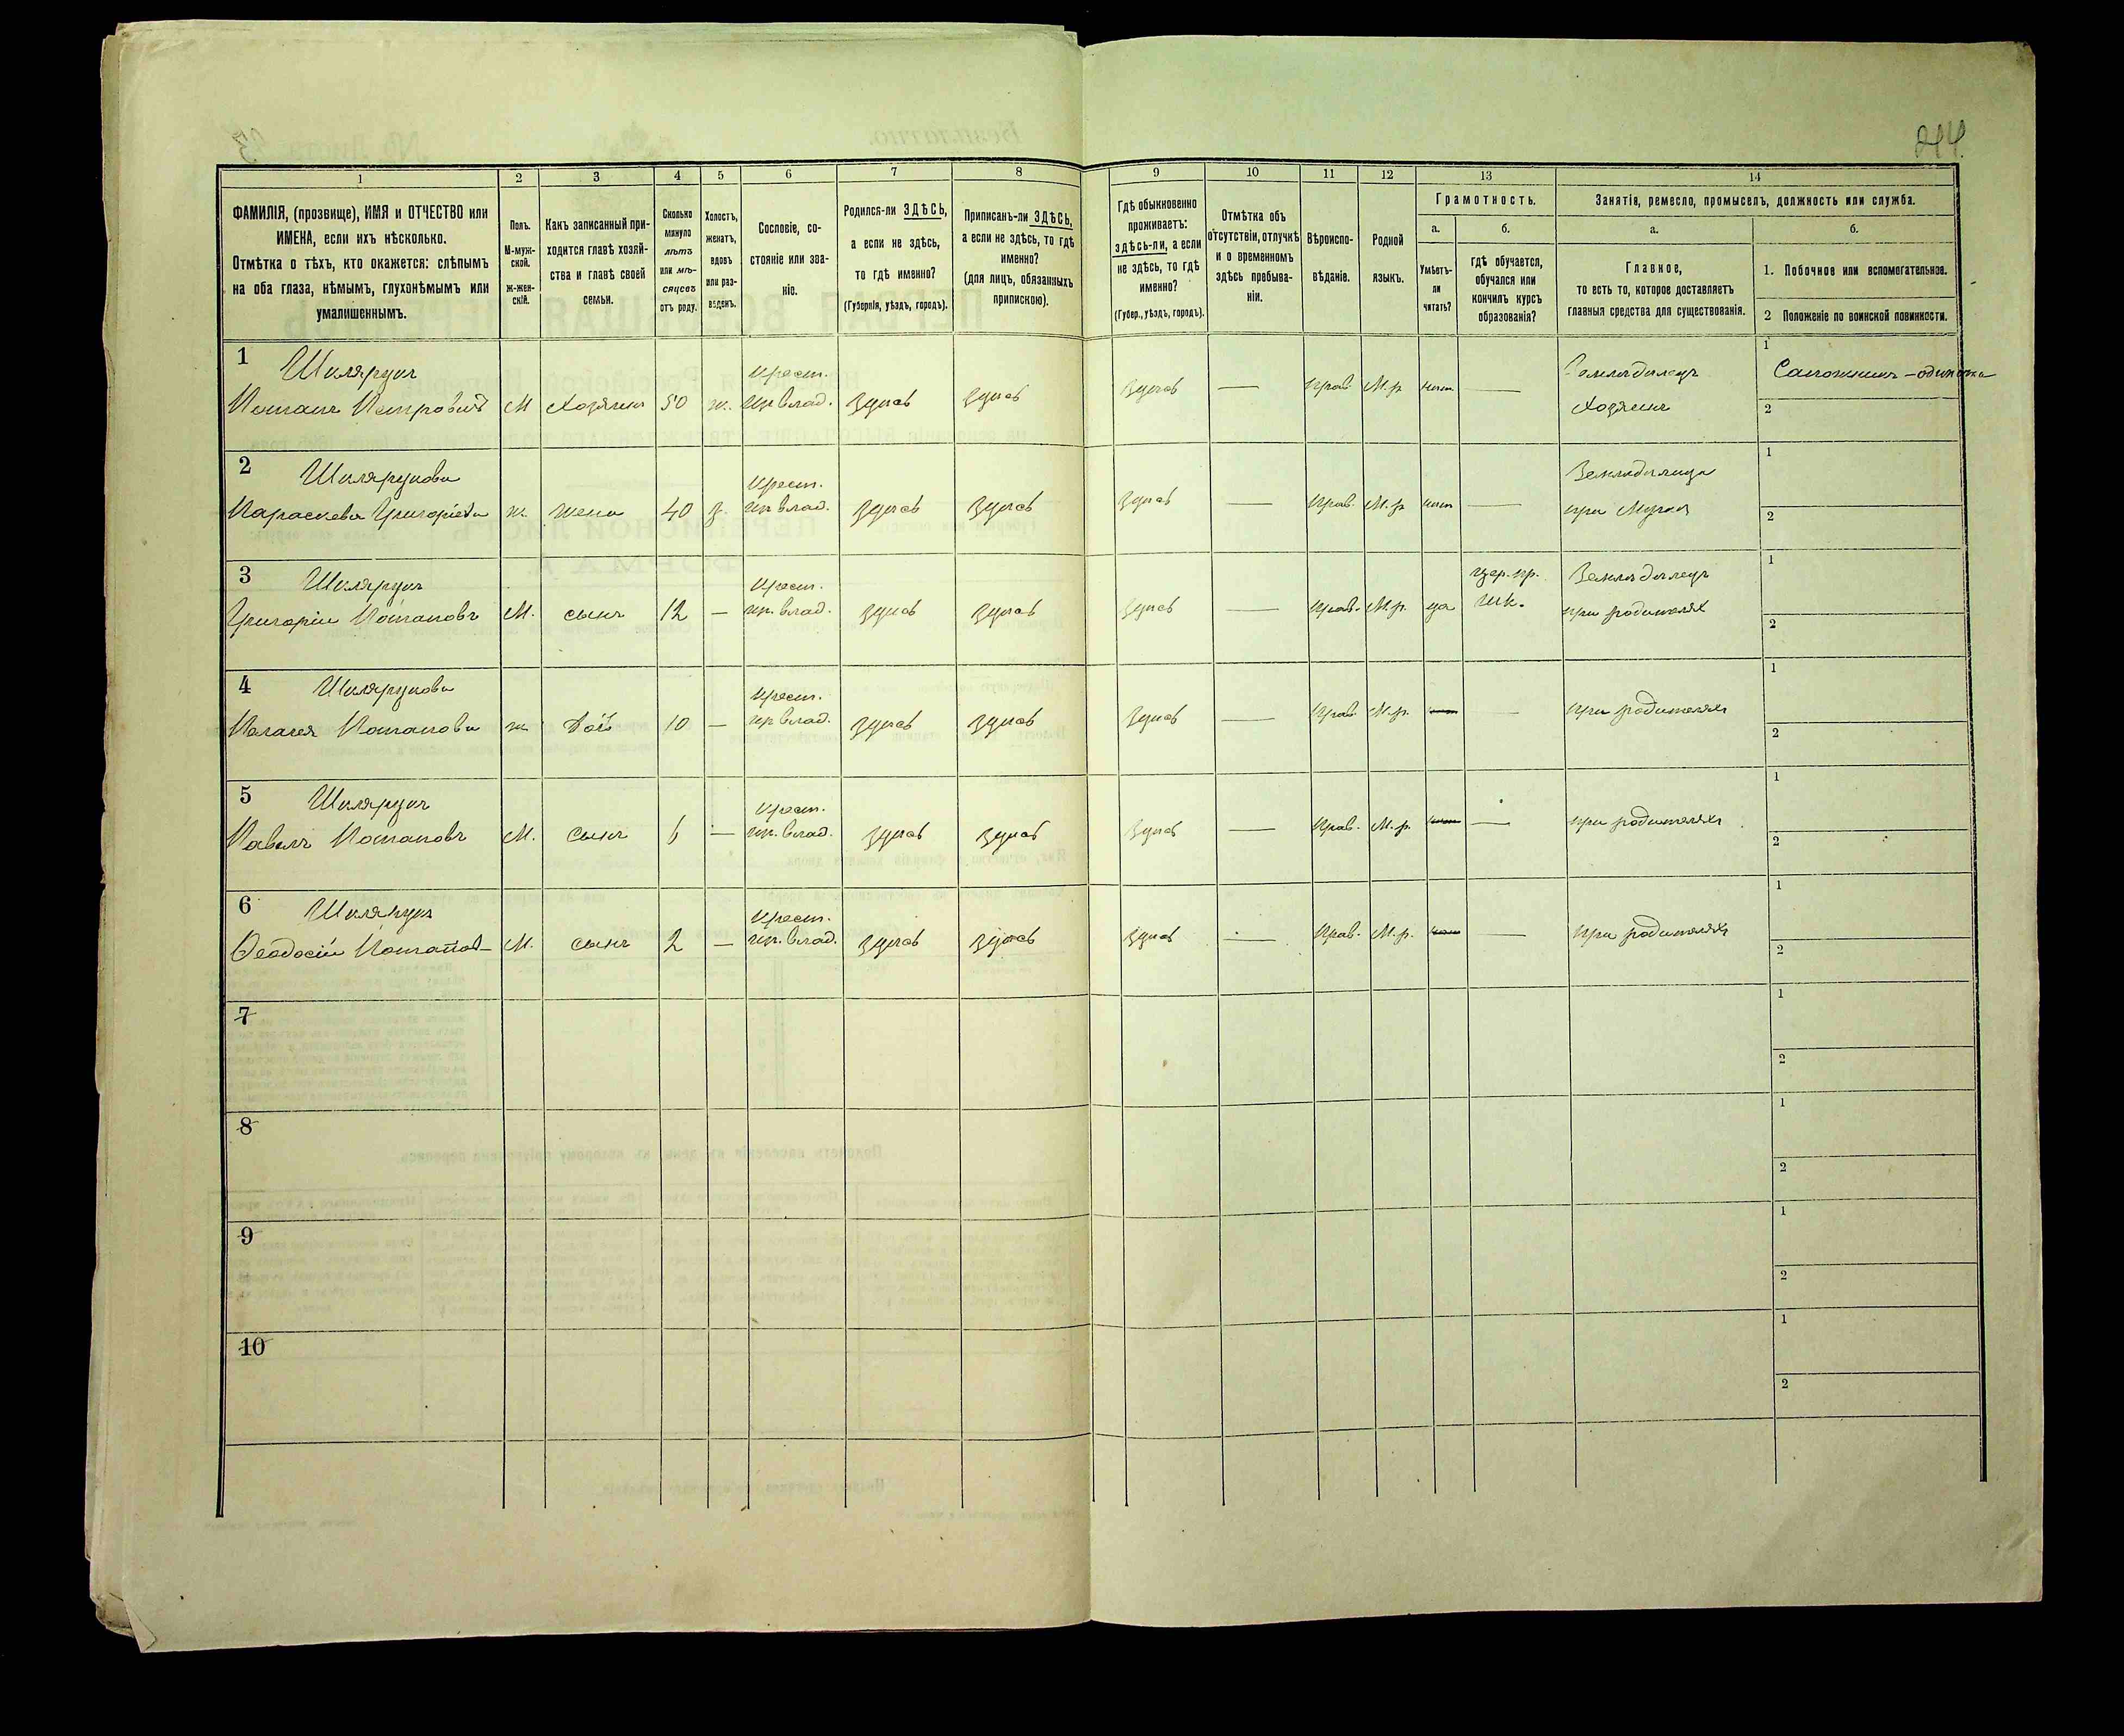 244.
1 2 3 4 5 6 7 8 9 10 11 12 13 14
ФАМИЛІЯ, (прозвище), ИМЯ и ОТЧЕСТВО или
ИМЕНА, если ихъ нѣсколько.
Отмѣтка о тѣхъ, кто окажется: слѣпымъ
на оба глаза, нѣмымъ, глухонѣмымъ или
умалишеннымъ.
Полъ.
М-муж-
ской.
ж-жен-
скій.
Какъ записанный при-
ходится главѣ хозяй-
ства и главѣ своей
семьи.
Сколько
минуло
лѣтъ
или мѣ-
сяцевъ
отъ роду.
Холостъ,
женатъ,
вдовъ
или раз-
веденъ.
Сословіе, со-
стояніе или зва-
ніе.
Родился-ли ЗДѢСЬ,
а если не здѣсь,
то гдѣ именно?
(Губернія, уѣздъ, городъ).
Приписанъ-ли ЗДѢСЬ,
а если не здѣсь, то гдѣ
именно?
(для лицъ, обязанныхъ
припискою).
Гдѣ обыкновенно
проживаетъ:
здѣсь-ли, а если
не здѣсь, то гдѣ
именно?
(Губер., уѣздъ, городъ).
Отмѣтка объ
отсутствіи, отлучкѣ
и о временномъ
здѣсь пребыва-
ніи.
Вѣроиспо-
вѣданіе.
Родной
языкъ.
Грамотность.
а.
Умѣетъ-
ли
читать?
б.
гдѣ обучается,
обучался или
кончилъ курсъ
образованія?
Занятія, ремесло, промыселъ, должность или служба.
а.
Главное,
то есть то, которое доставляетъ
главныя средства для существованія.
б.
1. Побочное или вспомогательное.
2 Положеніе по воинской повинности.
1 Шклярукъ крест. Земледѣлецъ 1 Сапожникъ - одиночка
Потапъ Петровичъ М Хозяинъ 50 ж. из влад. здѣсь здѣсь здѣсь — прав. М.р нѣт — Хозяинъ 2
2 Шклярукова крест. Земледѣлица 1
Параскева Григорієва ж. жена 40 з. из влад. здѣсь здѣсь здѣсь — прав. М.р нѣт — при Мужѣ 2
3 Шклярукъ крест. цер. пр. Земледѣлецъ 1
Григорій Потаповъ М. сынъ 12 — из. влад. здѣсь здѣсь здѣсь — прав. М.р. да шк. при родителях 2
4 Шклярукова крест. 1
Пелагея Потапова ж дочь 10 — из влад. здѣсь здѣсь здѣсь — прав. М.р. нѣт — при родителяхъ 2
5 Шклярукъ крест. 1
Павелъ Потаповъ М. Сынъ 6 — из. влад. здѣсь здѣсь здѣсь — прав. М.р. нѣт — при родителяхъ 2
6 Шклярукъ крест. 1
Ѳеодосій Потапов- М. сынъ 2 — из. влад. здѣсь здѣсь здѣсь — прав. М.р. нѣт — при родителяхъ 2
7 1
2
8 1
2
9 1
2
10 1
2